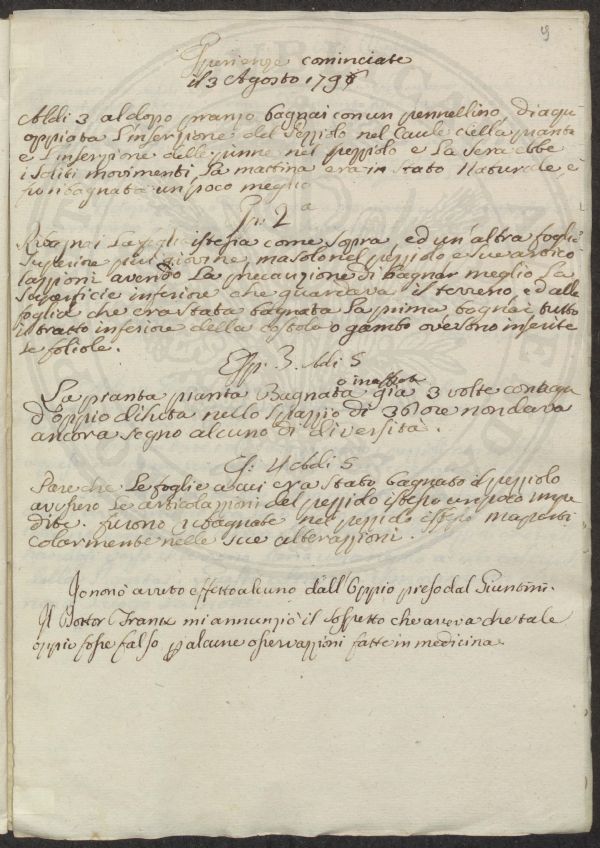 9
Esperienze cominciate
il 3 Agosto 179
Aldi 3 al dopo pranzo bagnai con un pennellino, di aqu
oppiata l'inserzione del pezziolo nel Caule della pianta
e l'inserzione delle pinne nel pezziolo e La sera ebbe
i soliti movimenti, La mattina era in stato Naturale, e
fu ribagnata un poco meglio
Esp: 2a
Ribagnai La foglia istessa come sopra, ed un'altra foglia
superiore più giovine, ma solo nel pezziolo e sue artico
lazzioni avendo La precauzione di bagnar meglio La
superficie inferiore che guardava il terreno, ed alla
foglia che era stata bagnata La prima bagnai tutto
il tratto inferiore della costola o gambo ove sono inserite
le foliole.
Esp. 3. Aldi 5
La pianta pianta Bagnata o inaffiata già 3 volte con aqua
d'oppio diluta nello spazzio di 36 ore non dava
ancora segno alcuno di diversità.
Es: 4 Aldi 5
Pare che Le foglie a cui era stato bagnato il pezziolo
avessero Le articolazzioni del pezziolo istesso un poco impe
dite. furono ribagnate nel pezziolo istesso ma parti
colarmente nelle sue alterazzioni.
Io non ò avuto effetto alcuno dall'Oppio preso dal Giuntini.
Il Dottor Frantz mi annunziò il sospetto che aveva che tale
oppio fosse falso p alcune osservazzioni fatte in medicina.